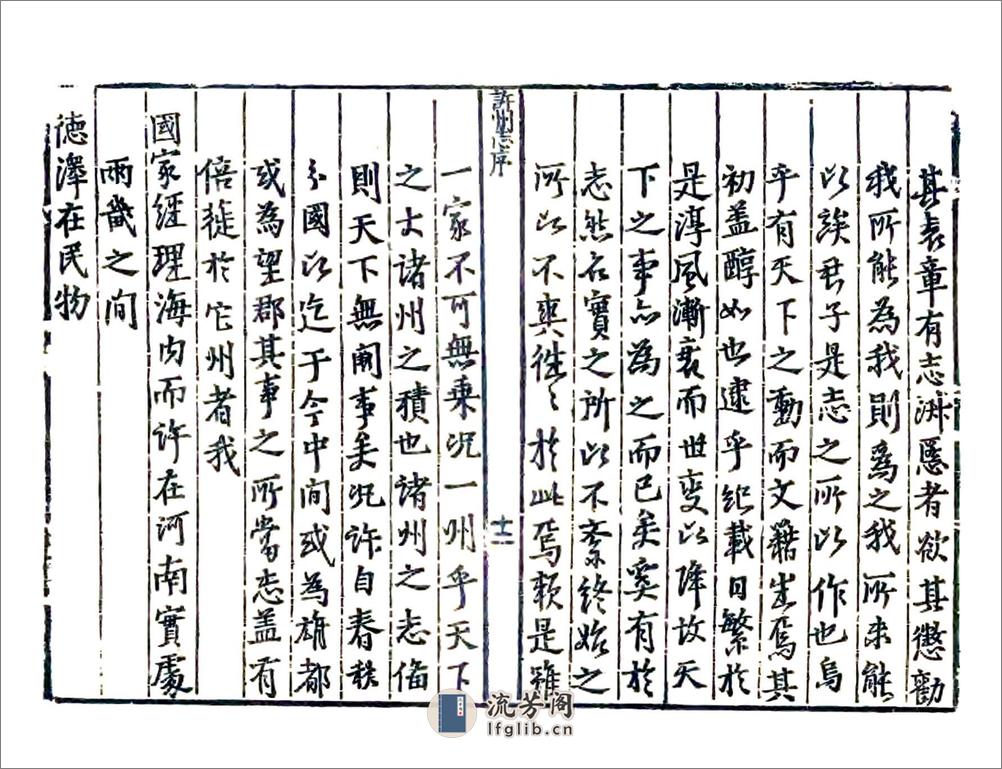 其表章有志淑慝者欲其懲勸
我所能為我則為之我所未能
以諉君子是志之所以作也烏
乎有天下之動而文籍生焉其
初蓋醇如也逮乎紀載日繁於
是淳風漸衰而世變以降故天
下之事亦為之而已矣奚有於
志然名實之所以不紊終始之
所以不爽徃〻於此焉賴是雖
許州志序
十二
一家不可無乗况一州乎天下
之大諸州之積也諸州之志俻
則天下無闕事矣况許自春秩
分國以迄于今中間或為雄都
或為望郡其事之所當志蓋有
倍蓰於它州者我
國家經理海内而許在河南實處
兩畿之間
德澤在民物
流芳阁
lfglib.cn